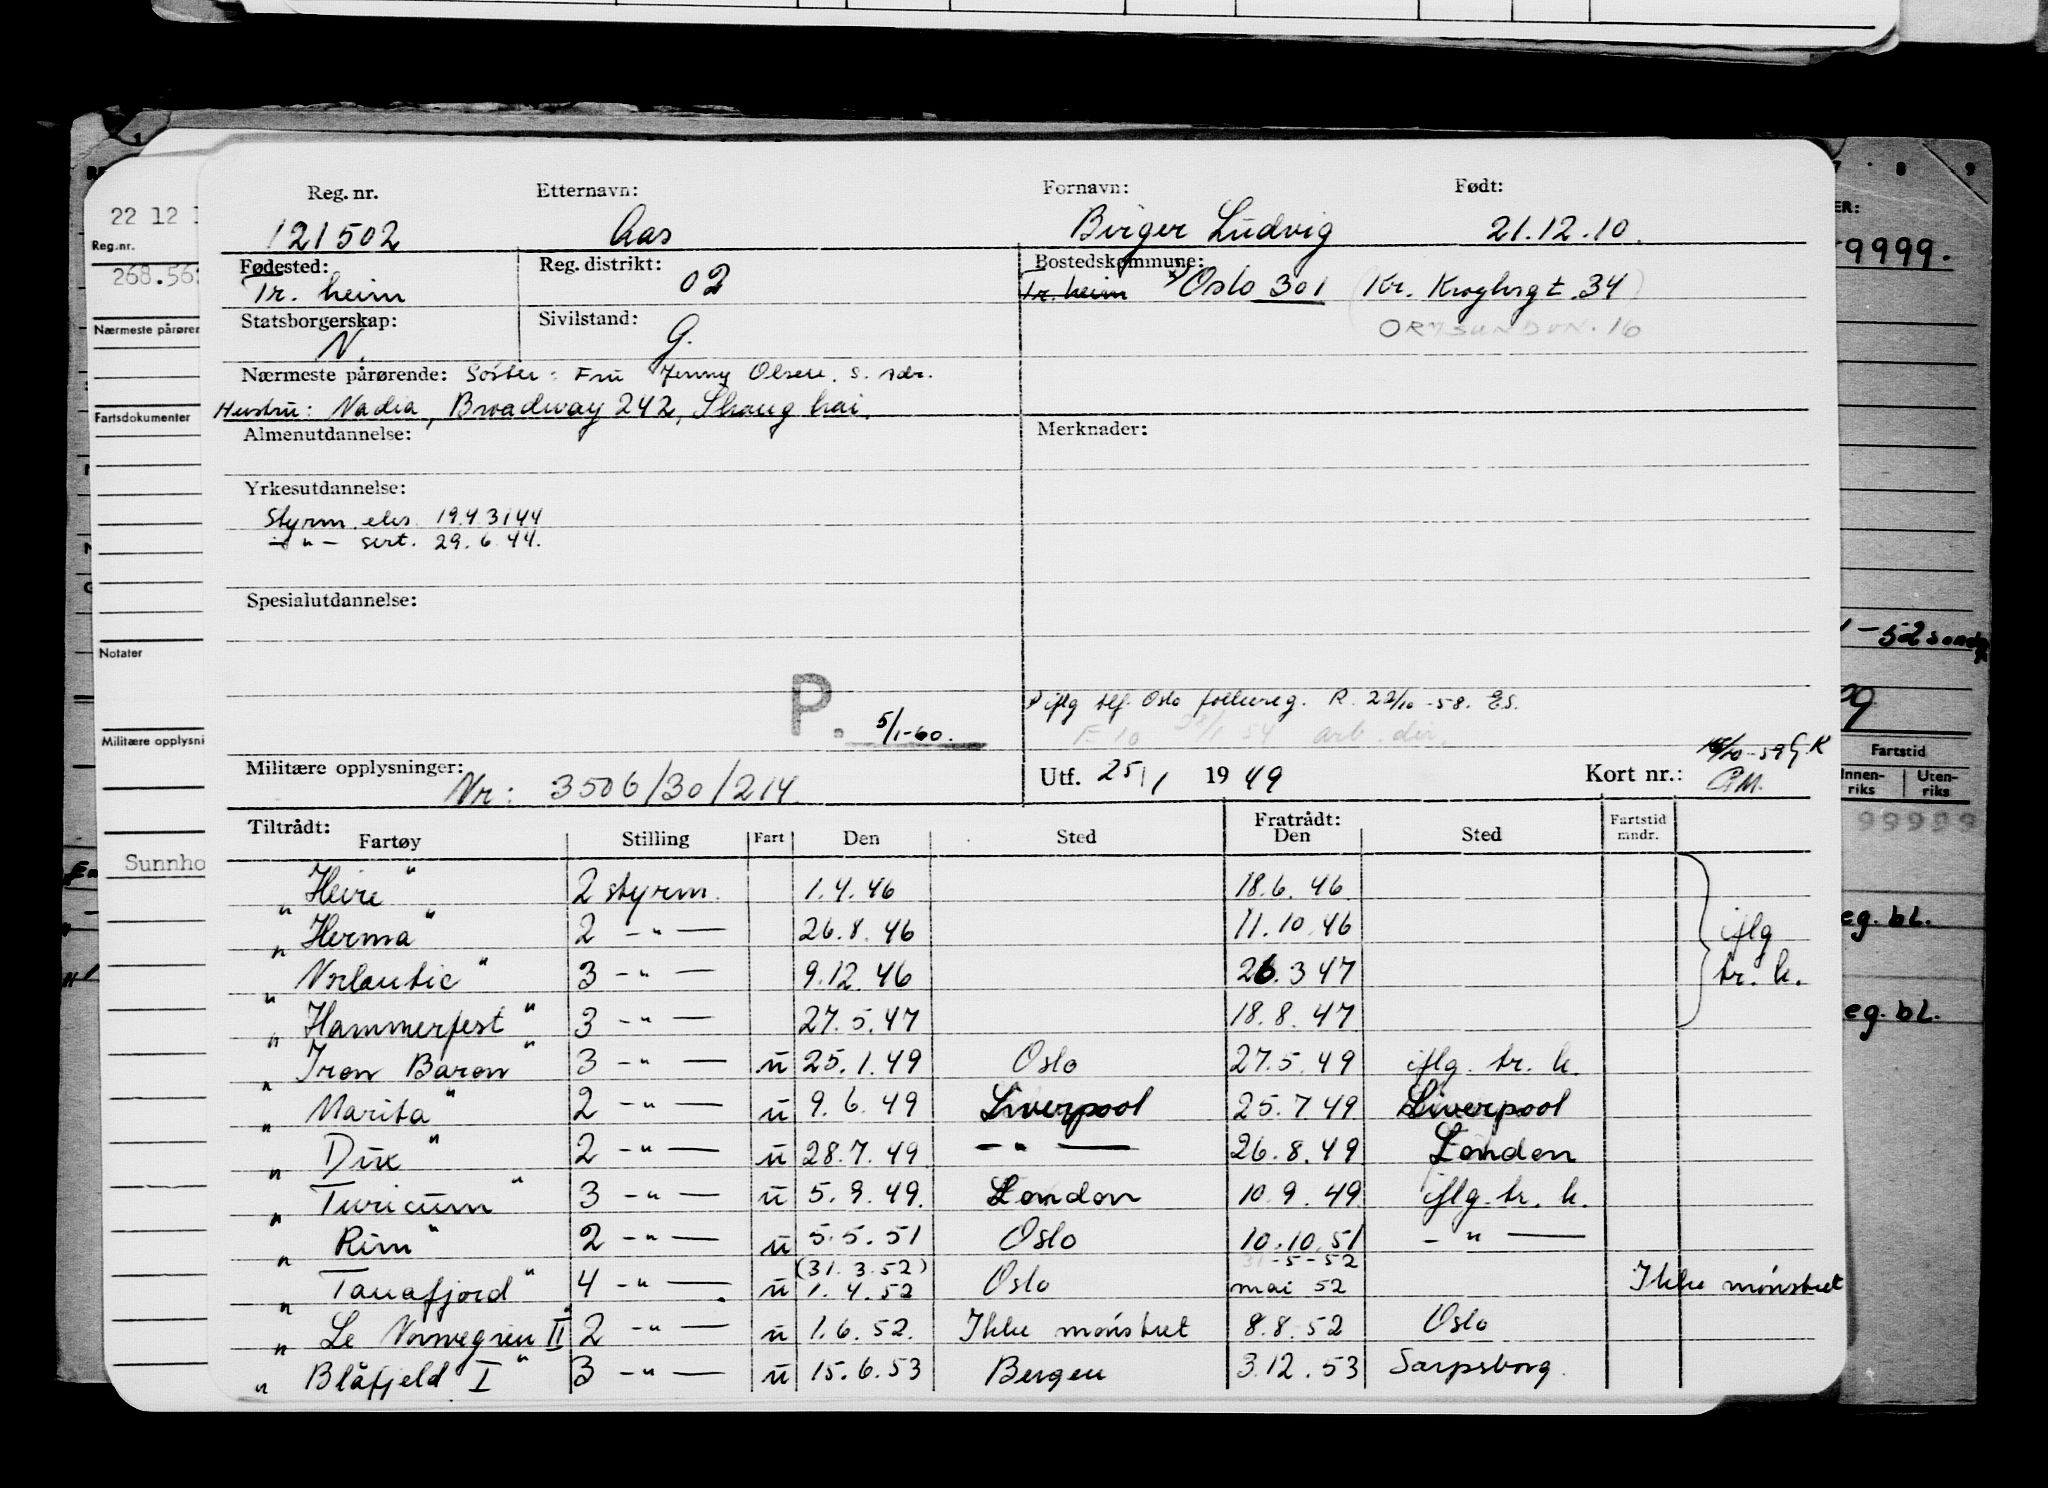 Reg. nr. Etternavn: Fornavn: Født:
121502 Aas Birger Ludvig 21.12.10.
Fødested: Reg. distrikt: Bostedskommune:
Tr. heim 02 Tr. heim Oslo 301 (Kr. Kroghsgt. 34)
ORMSUNDVN. 16
Statsborgerskap: Sivilstand:
N. G.
Nærmeste pårørende: Søster: Fru Jenny Olsen, s. adr.
Hustru: Nadia, Broadway 242, Shanghai.
Almenutdannelse: Merknader:
Yrkesutdannelse:
Styrm. eks. 19.4 3144
- " - sert. 29.6.44.
Spesialutdannelse:
P. 5/1-60.
P iflg tlf. Oslo folkereg. R. 22/10-58. E.S.
arb. dir.
Militære opplysninger: Nr: 3506/30/214.
Utf. 25/1 1949 Kort nr.:
Tiltrådt: Fratrådt:
Fartøy Stilling Fart Den Sted Den Sted Fartstid mndr.
" Heire " 2 styrm. 1.4.46 18.6.46
" Herma " 2 - " - 26.8.46 11.10.46 iflg
" Norlantic " 3 - " - 9.12.46 26.3 47 tr. k.
" Hammerfest " 3 - " - 27.5.47 18.8.47
" Iron Baron " 3 - " - u 25.1.49 Oslo 27.5.49 iflg. tr. k.
" Marita " 2 - " - u 9.6.49 Liverpool 25.7.49 Liverpool
" Dux " 2 - " - u 28.7.49 - " - 26.8.49 London
" Turicum " 3 - " - u 5.9.49. London 10.9.49 iflg. tr. k.
" Rim " 2 - " - u 5.5.51 Oslo 10.10.51 - " -
(31.3.52) 31-5-52
" Tanafjord " 4 - " - u 1.4.52 Oslo mai 52 Ikke mønstret
" Le Norvegien II " 2 - " - u 1.6.52. Ikke mønstret 8.8.52 Oslo
" Blåfjeld I " 3 - " - u 15.6.53 Bergen 3.12.53 Sarpsborg.
22 12
Reg.nr.
268.56
Nærmeste pårører
Fartsdokumenter
Notater
Militære opplysni
Sunnho
8 9
ER:
9999.
-52
Fartstid
Innen-riks Uten-riks
99999
eg. bl.
eg. bl.